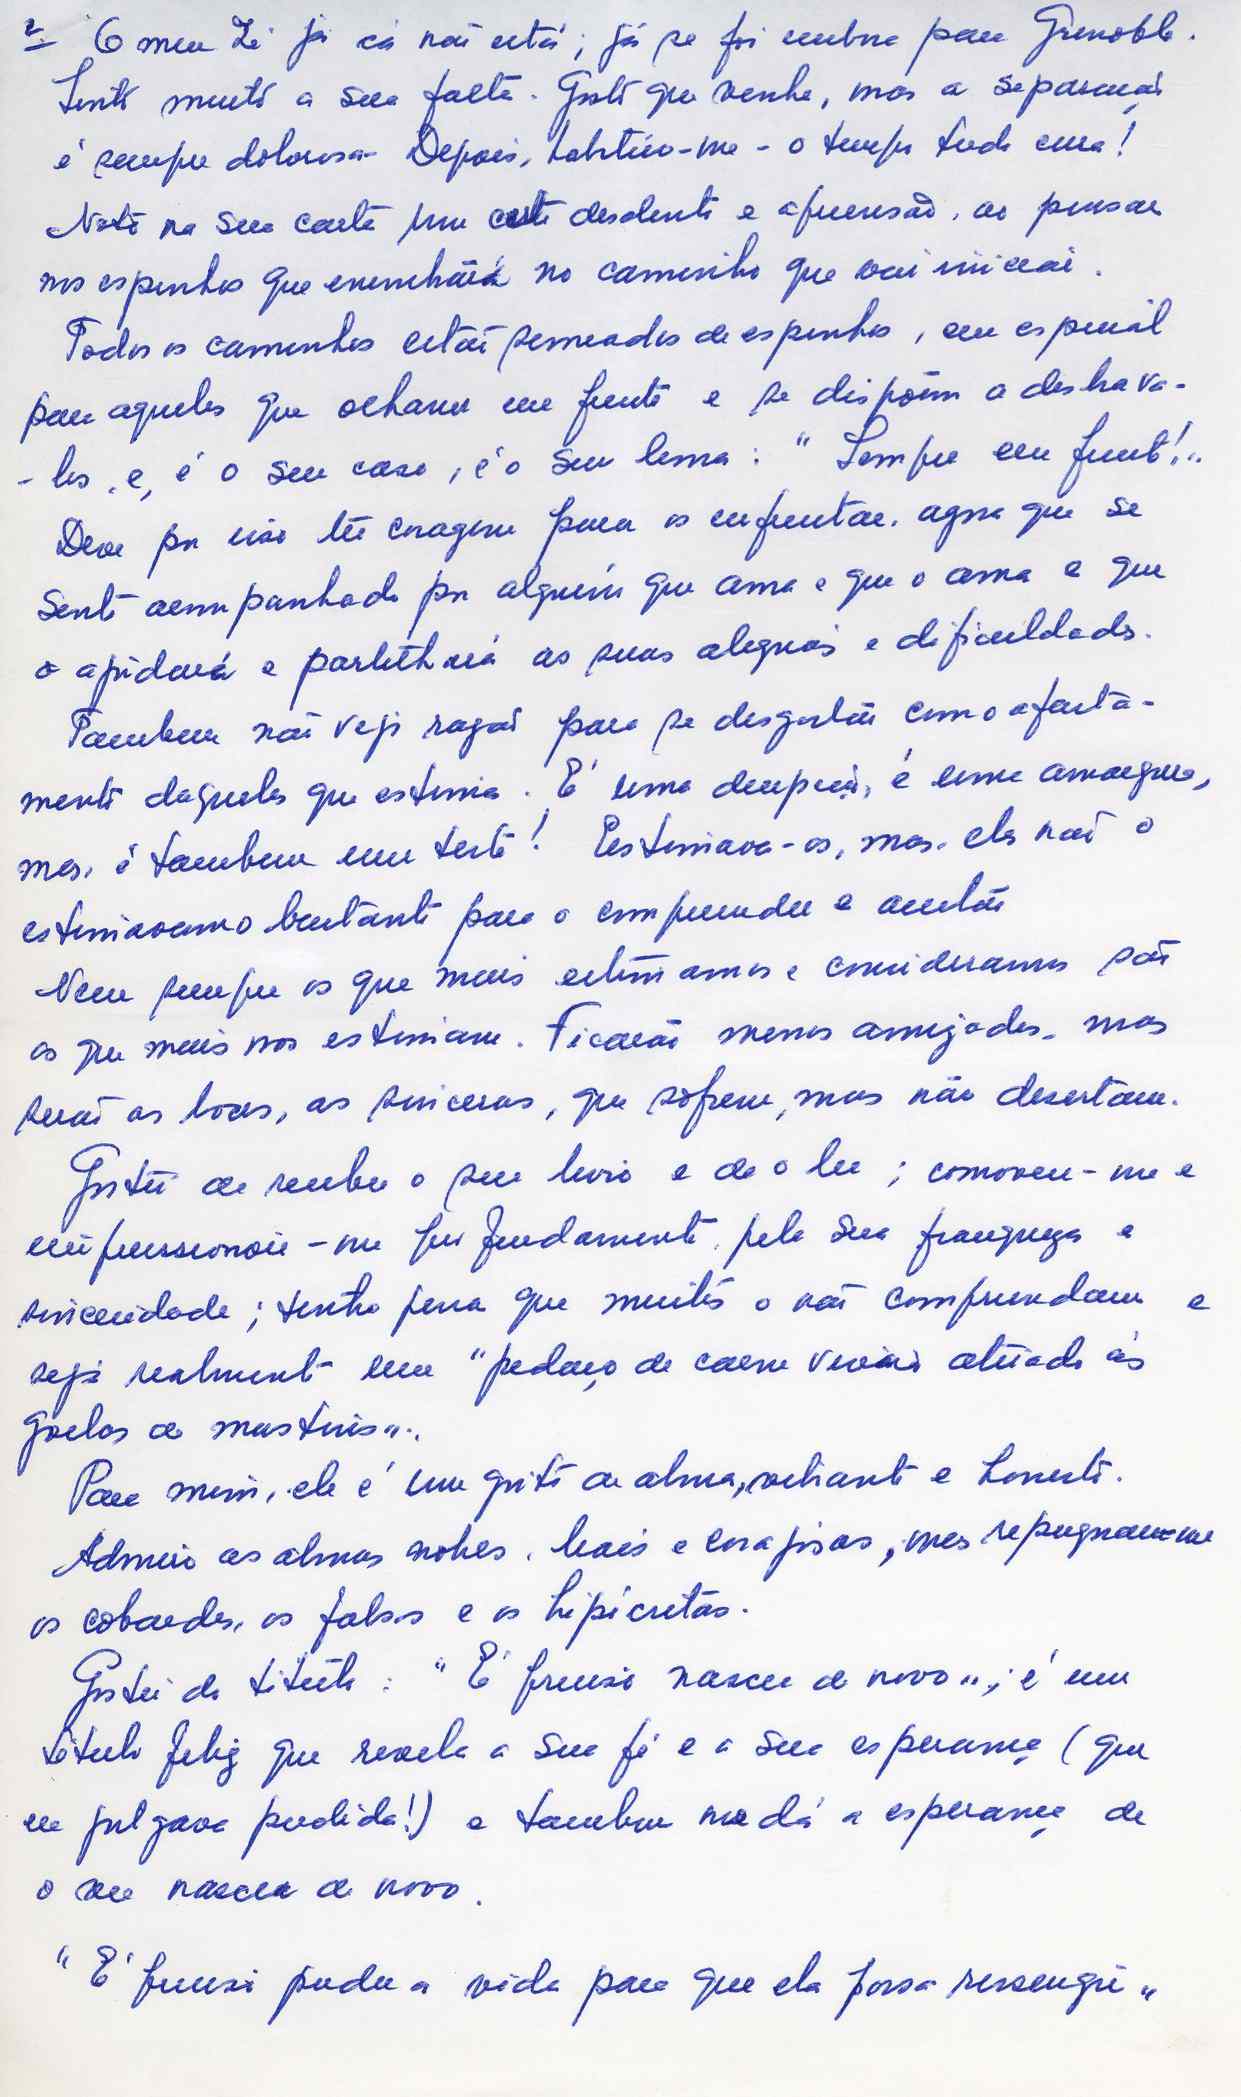 2- O meu Zé já cá não está; já se foi embora para Grenoble.
Senti muito a sua falta. Gosto que venha, mas a separação
é sempre dolorosa. Depois, habituo-me - o tempo tudo cura!
Noto na sua carta um certo desalento e apreensão, ao pensar
nos espinhos que encontrará no caminho que vai iniciar.
Todos os caminhos estão semeados de espinhos, em especial
para aqueles que olham em frente e se dispõem a desbrava-
-los, e, é o seu caso, é o seu lema: "Sempre em frente!"
Deve por isso ter coragem para os enfrentar, agora que se
sente acompanhado por alguém que ama e que o ama e que
o ajudará e partilhará as suas alegrias e dificuldades.
Tambem não vejo razão para se desgostar com o afasta-
mento daqueles que estima. É uma decepção, é uma amargura,
mas, é tambem um teste! Estimava-os, mas, eles não o
estimavam o bastante para o compreender e aceitar
Nem sempre os que mais estimamos e consideramos são
os que mais nos estimam. Ficarão menos amizades, mas
serão as boas, as sinceras, que sofrem, mas não desertam.
Gostei de receber o seu livro e de o ler; comoveu-me e
impressionou-me profundamente, pela sua franqueza e
sinceridade; tenho pena que muitos o não compreendam e
seja realmente um "pedaço de carne viva atirado ás
goelas de mastins".
Para mim, ele é um grito de alma, vibrante e honesto.
Admiro as almas nobres, leais e corajosas, mas repugnam-me
os cobardes, os falsos e os hipócritas.
Gostei do titulo: "É preciso nascer de novo"; é um
titulo feliz que revela a sua fé e a sua esperança (que
eu julgava perdida!) e tambem me dá a esperança de
o ver nascer de novo.
"É preciso perder a vida para que ela possa ressurgir"